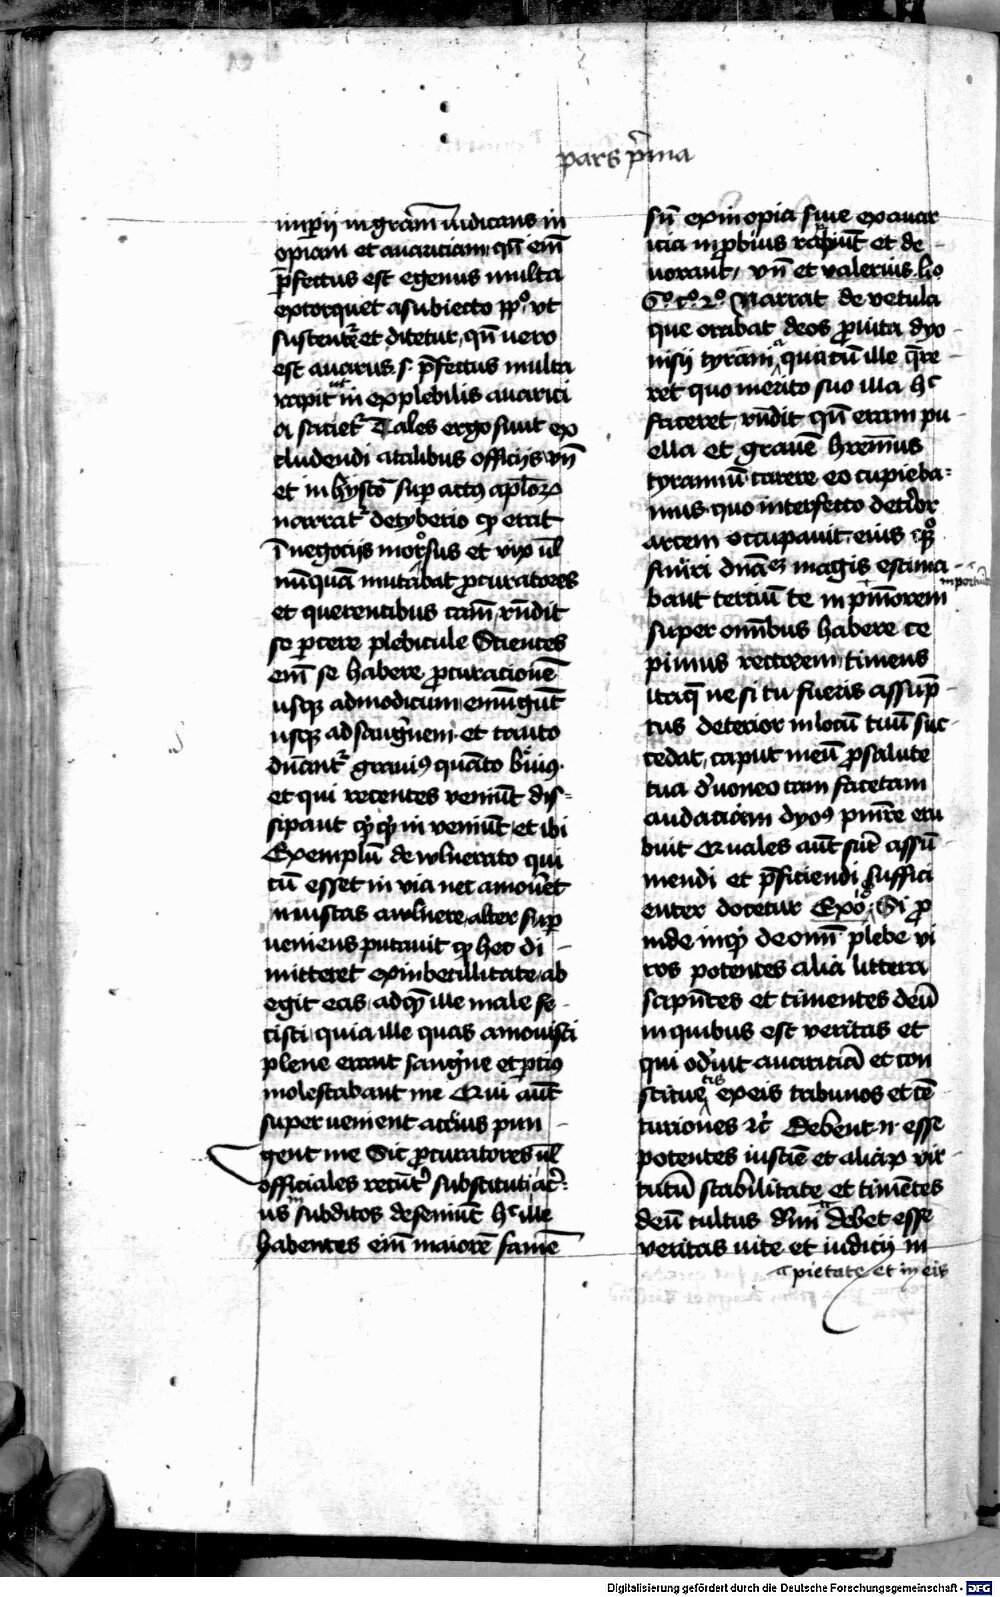 pars p̄ma
imperij in grām iudicans in
opiam et auariciam qn̄ eīm
p̄fectus est egenus multa
extorquet a subiecto ppo vt
sustentet' et ditetur, qn̄ uero
est auarus s. p̄fectus multa
rapit ut in explebilis auarici
a saciet' Tales ergo sunt ex
cludendi a talibus officijs vn̄
et in hystō sup actꝯ aplo℞
narrat' de tyberio qꝫ erat
ī negocijs morosus et vix ul̄
nūnquā mutabat pcuratores
et querentibus cām rn̄dit
se parcere plebicule Scientes
eīm se habere pcuracionē
usqꝫ ad modicum emūgūt
usqꝫ ad sanguinem et tanto
dicant' grauiꝯ quāto breuiꝯ
et qui recentes veniūt dis-
sipant qꝫqꝫ inveniūt et ibi
Exemplū de vulnerato qui
cū esset in via nec amoueret
muscas a vulnere alter sup
ueniens putauit qꝫ hec di-
mitteret ex imbecillitate ab
egit eas, ad qꝫ ille male fe-
cisti quia ille quas amouisti
plene erant sanguine et pciꝯ
molestabant me Qui aūt
super uenient acrius pun-
gent me Sic pcuratores ul̄
officiales recent' substituti acri-
us in subditos deseuiūt hc ille
habentes eīm maiorē famē
sn̄ ex inopia siue ex auar
icia improbius rapiūt et de-
uorant, vn̄ et valerius. lio
6o. co. 2o. Narrat de vetula
que orabat deos p vita dyo-
nisij tyranni a qua cū ille q̄re-
ret quo merito suo illa hc
faceret, rn̄dit qn̄ eram pu-
ella et grauē hrēmus
tyrannū carere eo cupieba-
mus quo interfecto deterior
arcem occupauit, eius qqꝫ
finiri dn̄acꝫ magis estima-
bant tercium te in pmorem inportuni
super omībus habere ce
pimus rectorem, timens
itaqꝫ ne si tu fueris assūp-
tus deterior in locū tuū suc-
cedat, caput meū p salute
tua deuoneo tam facetam
audaciam dyoꝯ punire eru
buit Quales aūt sint assū
mendi et p̄ficiendi suffici
enter docetur Exo. 18o Si pro
uide inqꝫ de omī plebe vi
ros potentes alia littera
sapn̄tes et timentes deū
in quibus est veritas et
qui oderint auariciā et con
stitue ctis ex eis tribunos et cē
turiones 2c Debent n. esse
potentes iusticie et aliarꝫ vir
tutū stabilitate et timētes
deū cultus diuini debet esse
veritas uite et iudicij in
pietate et in eis